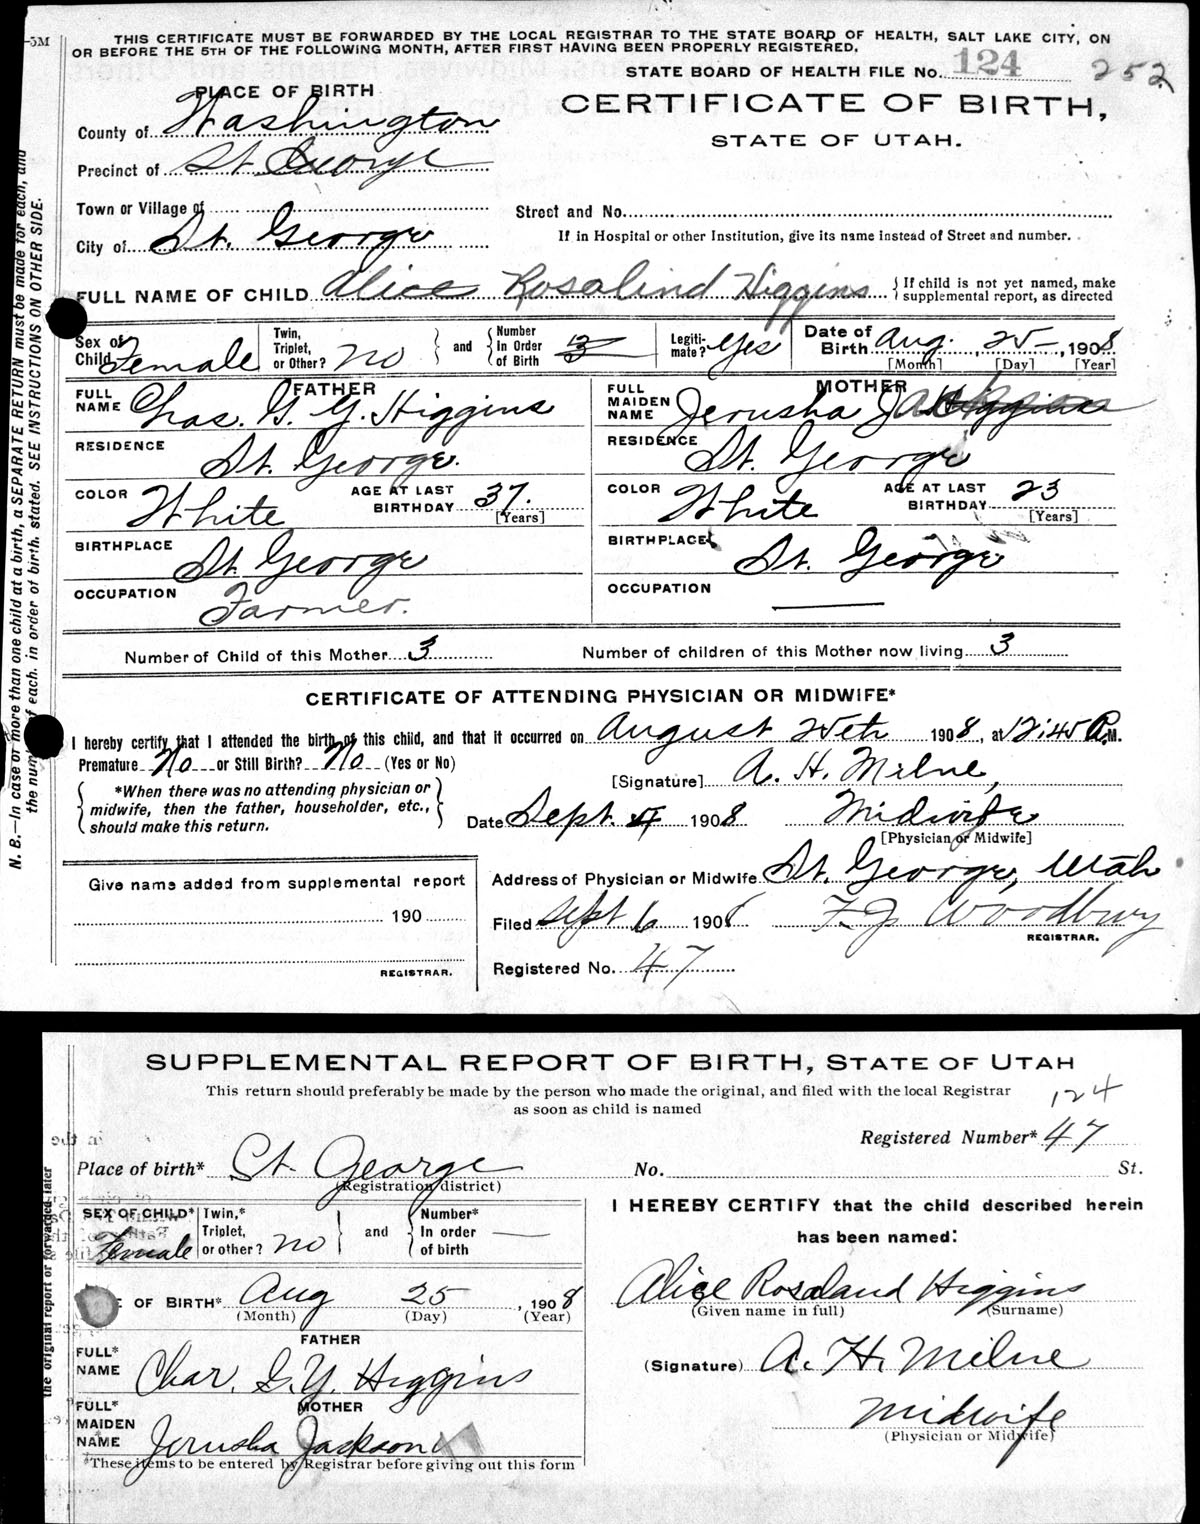 THIS CERTIFICATE MUST BE FORWARDED BY THE LOCAL REGISTRAR TO THE STATE BOARD OF HEALTH, SALT LAKE CITY, ON
OR BEFORE THE 5TH OF THE FOLLOWING MONTH, AFTER FIRST HAVING BEEN PROPERLY REGISTERED.
STATE BOARD OF HEALTH FILE No. 124 252
PLACE OF BIRTH
CERTIFICATE OF BIRTH,
STATE OF UTAH.
County of Washington
Precinct of St. George
Town or Village of
Street and No.
City of St. George
If in Hospital or other Institution, give its name instead of Street and number.
FULL NAME OF CHILD Alice Rosalind Higgins { If child is not yet named, make supplemental report, as directed
Sex of Child Female Twin, Triplet, or Other? No } and { Number In Order of Birth 3 Legiti-mate? Yes Date of Birth Aug. 25 , 1908
[Month] [Day] [Year]
FATHER MOTHER
FULL NAME Chas. G. Y. Higgins FULL MAIDEN NAME Jerusha Jackson
RESIDENCE St. George. RESIDENCE St. George
COLOR White AGE AT LAST BIRTHDAY 37. [Years] COLOR White AGE AT LAST BIRTHDAY 23 [Years]
BIRTHPLACE St. George BIRTHPLACE St. George
OCCUPATION Farmer. OCCUPATION
Number of Child of this Mother 3 Number of children of this Mother now living 3
CERTIFICATE OF ATTENDING PHYSICIAN OR MIDWIFE*
I hereby certify that I attended the birth of this child, and that it occurred on August 25th 1908, at 12:45 P.M.
Premature No or Still Birth? No (Yes or No)
[Signature] A. H. Milne,
{ *When there was no attending physician or midwife, then the father, householder, etc., should make this return. }
Date Sept. 4 1908 Midwife
[Physician or Midwife]
Address of Physician or Midwife St. George, Utah
Give name added from supplemental report
190
Filed Sept 6 1908 F. J. Woodbury
REGISTRAR.
REGISTRAR.
Registered No. 47
N. B.—In case of more than one child at a birth, a SEPARATE RETURN must be made for each, and
the number of each, in order of birth, stated. SEE INSTRUCTIONS ON OTHER SIDE.
SUPPLEMENTAL REPORT OF BIRTH, STATE OF UTAH
This return should preferably be made by the person who made the original, and filed with the local Registrar
as soon as child is named
124
Registered Number* 47
Place of birth* St. George No. St.
(Registration district)
SEX OF CHILD* Female Twin,* Triplet, or other? no } and { Number* In order of birth
I HEREBY CERTIFY that the child described herein
has been named:
DATE OF BIRTH* Aug 25 , 1908
(Month) (Day) (Year)
Alice Rosaland Higgins
(Given name in full) (Surname)
FATHER
FULL* NAME Char. G. Y. Higgins
(Signature) A. H. Milne
MOTHER
FULL* MAIDEN NAME Jerusha Jackson
Midwife
(Physician or Midwife)
*These items to be entered by Registrar before giving out this form
the original report or forwarded later